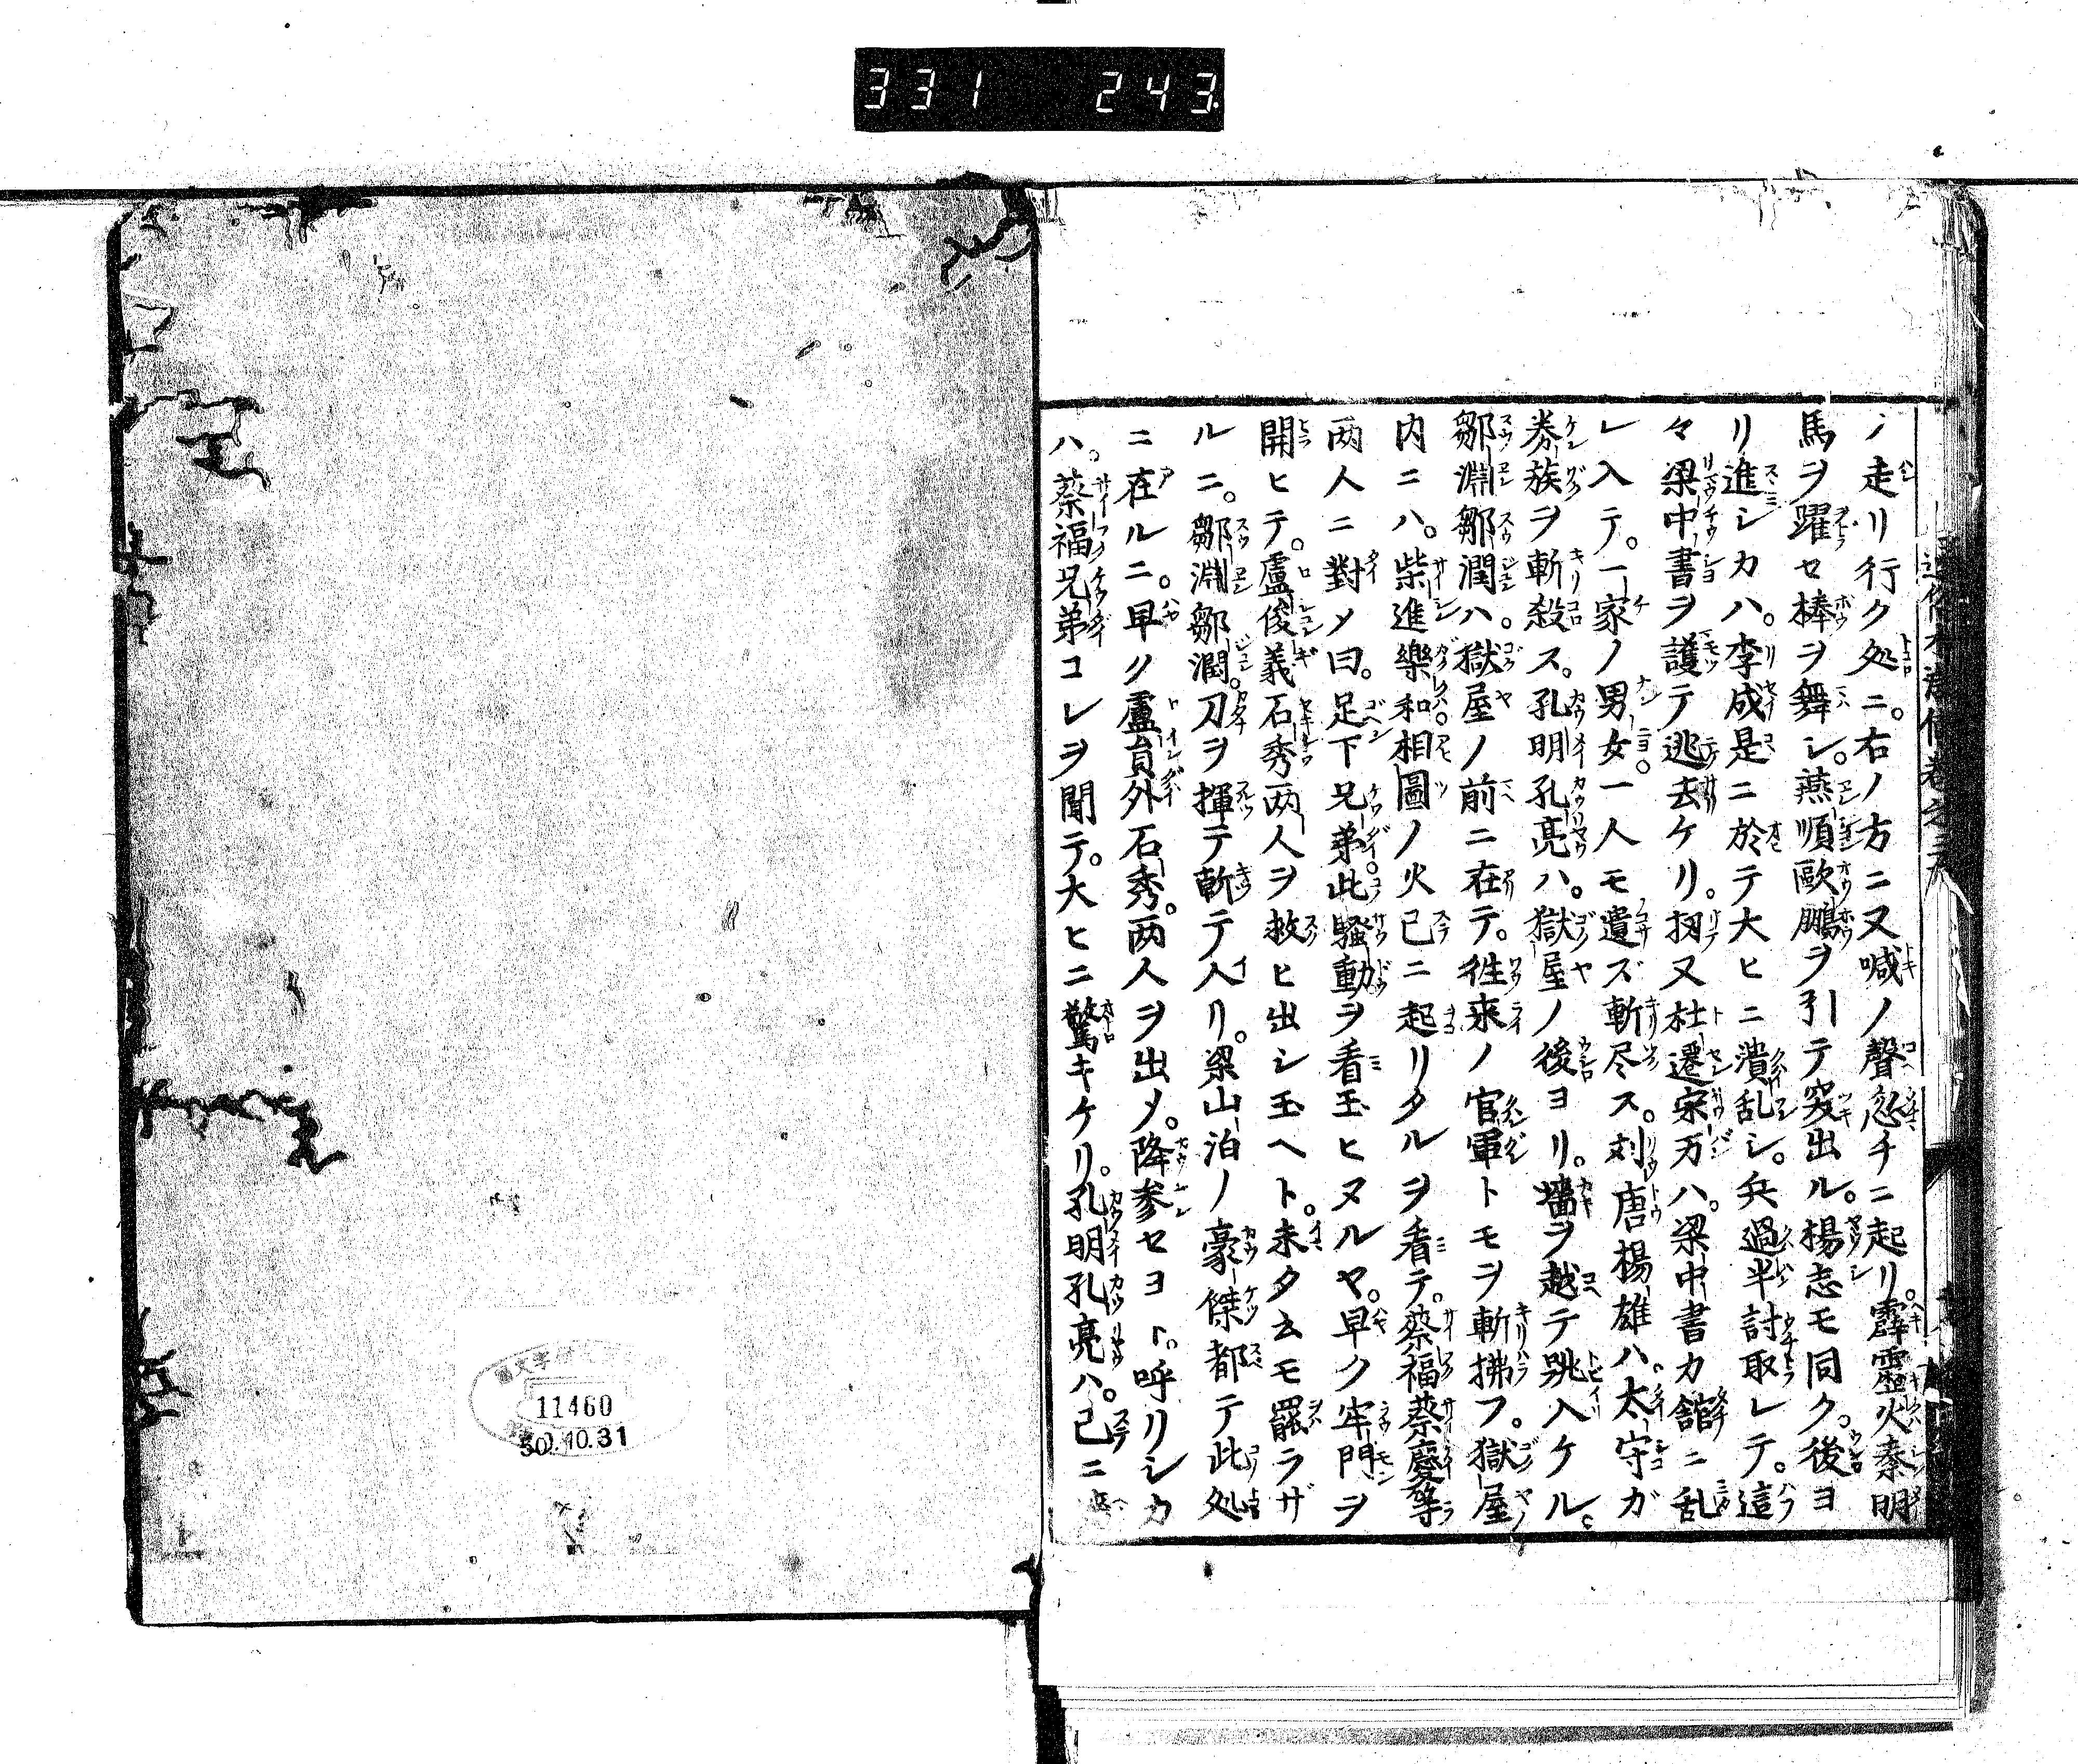 331 243
ノ走リ行ク処ニ。右ノ方ニ又喊ノ聲忽チニ起リ。霹靂火秦明
馬ヲ躍セ棒ヲ舞シ。燕順歐鵬ヲ引テ突出ル。楊志モ同ク。後ヨ
リ進シカハ。李成是ニ於テ大ヒニ潰乱シ。兵過半討取レテ。這
々梁中書ヲ護テ逃去ケリ。扨又杜遷宋万ハ。梁中書カ舘ニ乱
レ入テ。一家ノ男女。一人モ遺ズ斬尽ス。刘唐楊雄ハ。太守ガ
眷族ヲ斬殺ス。孔明孔亮ハ。獄屋ノ後ヨリ。墻ヲ越テ跳入ケル。
鄒淵鄒潤ハ。獄屋ノ前ニ在テ。徃来ノ官軍トモヲ斬拂フ。獄屋
内ニハ。柴進樂和。相圖ノ火已ニ起リタルヲ看テ。蔡福蔡慶等
两人ニ對メ曰。足下兄弟。此騒動ヲ看玉ヒヌルヤ。早ク牢門ヲ
開ヒテ。盧俊義石秀两人ヲ救ヒ出シ玉ヘト。未タ云モ罷ラザ
ルニ。鄒淵鄒潤。刀ヲ揮テ斬テ入リ。梁山泊ノ豪傑都テ此処
ニ在ルニ。早ク盧員外石秀。两人ヲ出メ。降参セヨト。呼リシカ
ハ。蔡福兄弟コレヲ聞テ。大ヒニ驚キケリ。孔明孔亮ハ。已ニ
11460
50.10.31